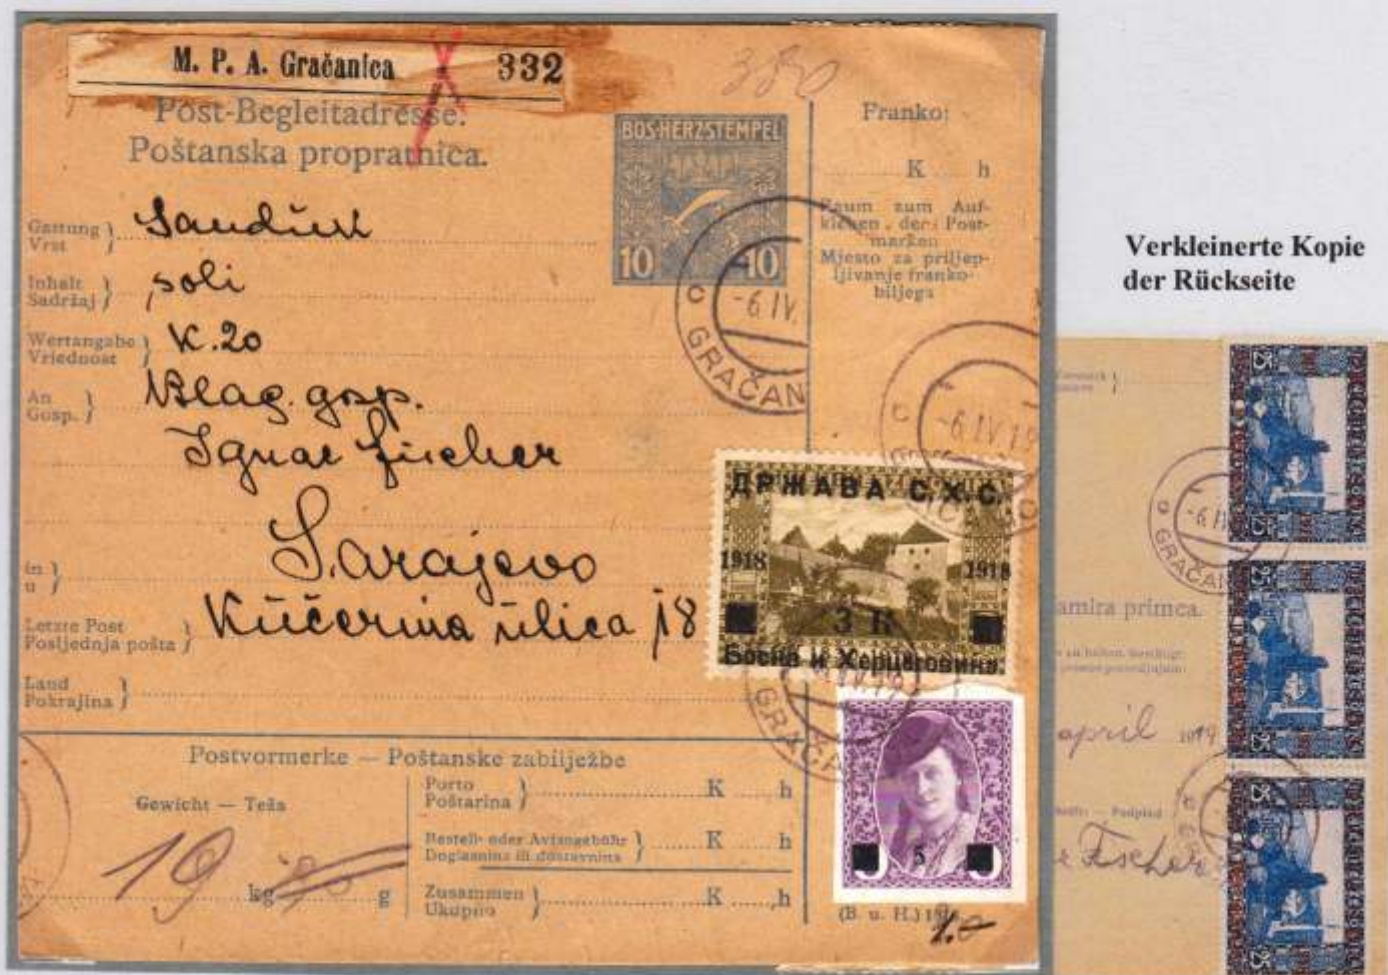 M. P. A. Gračanica 332
380
Post-Begleitadresse:
Poštanska propratnica.
BOS-HERZ STEMPEL
10 10
Franko:
K h
Raum zum Auf-
kleben der Post-
marken
Mjesto za priljep-
ljivanje franko-
biljega
Gattung
Vrst
Sanduk
Inhalt
Sadržaj
soli
Wertangabe
Vriednost
K. 20
An
Gosp.
Blag. gosp.
Ignac Fischer
in
u
Sarajevo
Letzte Post
Posljednja pošta
Kučerina ulica 18
Land
Pokrajina
-6.IV.
GRAČAN
-6.IV.19
ДРЖАВА С.Х.С.
1918 1918
3 K
Босна и Херцеговина.
GRAČA
5
Postvormerke — Poštanske zabilježbe
Gewicht — Teža
19 kg g
Porto
Poštarina
K h
Bestell- oder Avisogebühr
Doglasnina ili dostavnina
K h
Zusammen
Ukupno
K h
(B. u. H.)
Verkleinerte Kopie
der Rückseite
-6.I
GRAČA
25
25
25
primca.
april 1919
Potpis
Fischer